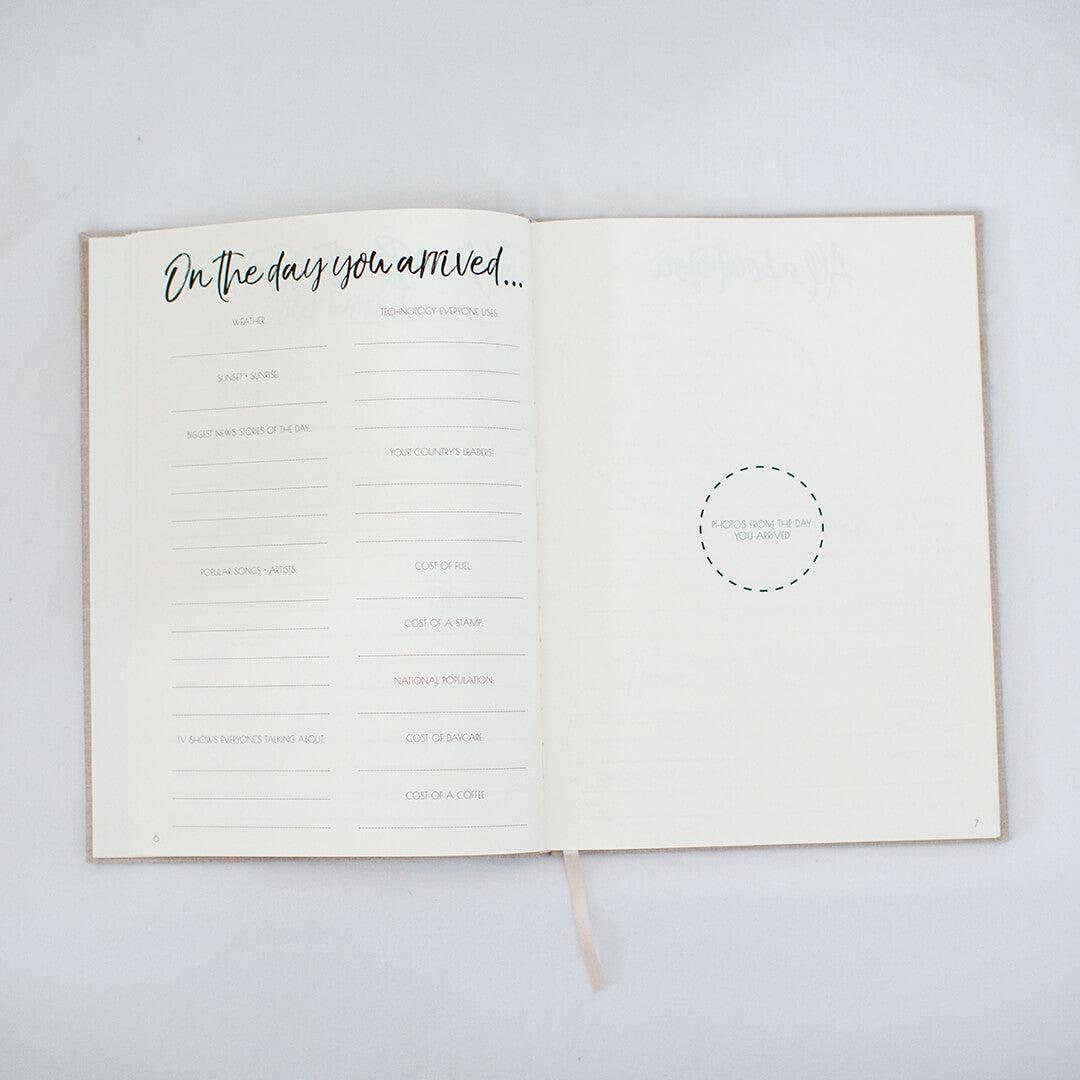 On the day you arrived...
WEATHER:
SUNSET • SUNRISE:
BIGGEST NEWS STORIES OF THE DAY:
POPULAR SONGS • ARTISTS:
TV SHOWS EVERYONE'S TALKING ABOUT:
TECHNOLOGY EVERYONE USES:
YOUR COUNTRY'S LEADERS:
COST OF FUEL:
COST OF A STAMP:
NATIONAL POPULATION:
COST OF DAYCARE:
COST OF A COFFEE:
6
PHOTOS FROM THE DAY
YOU ARRIVED
7